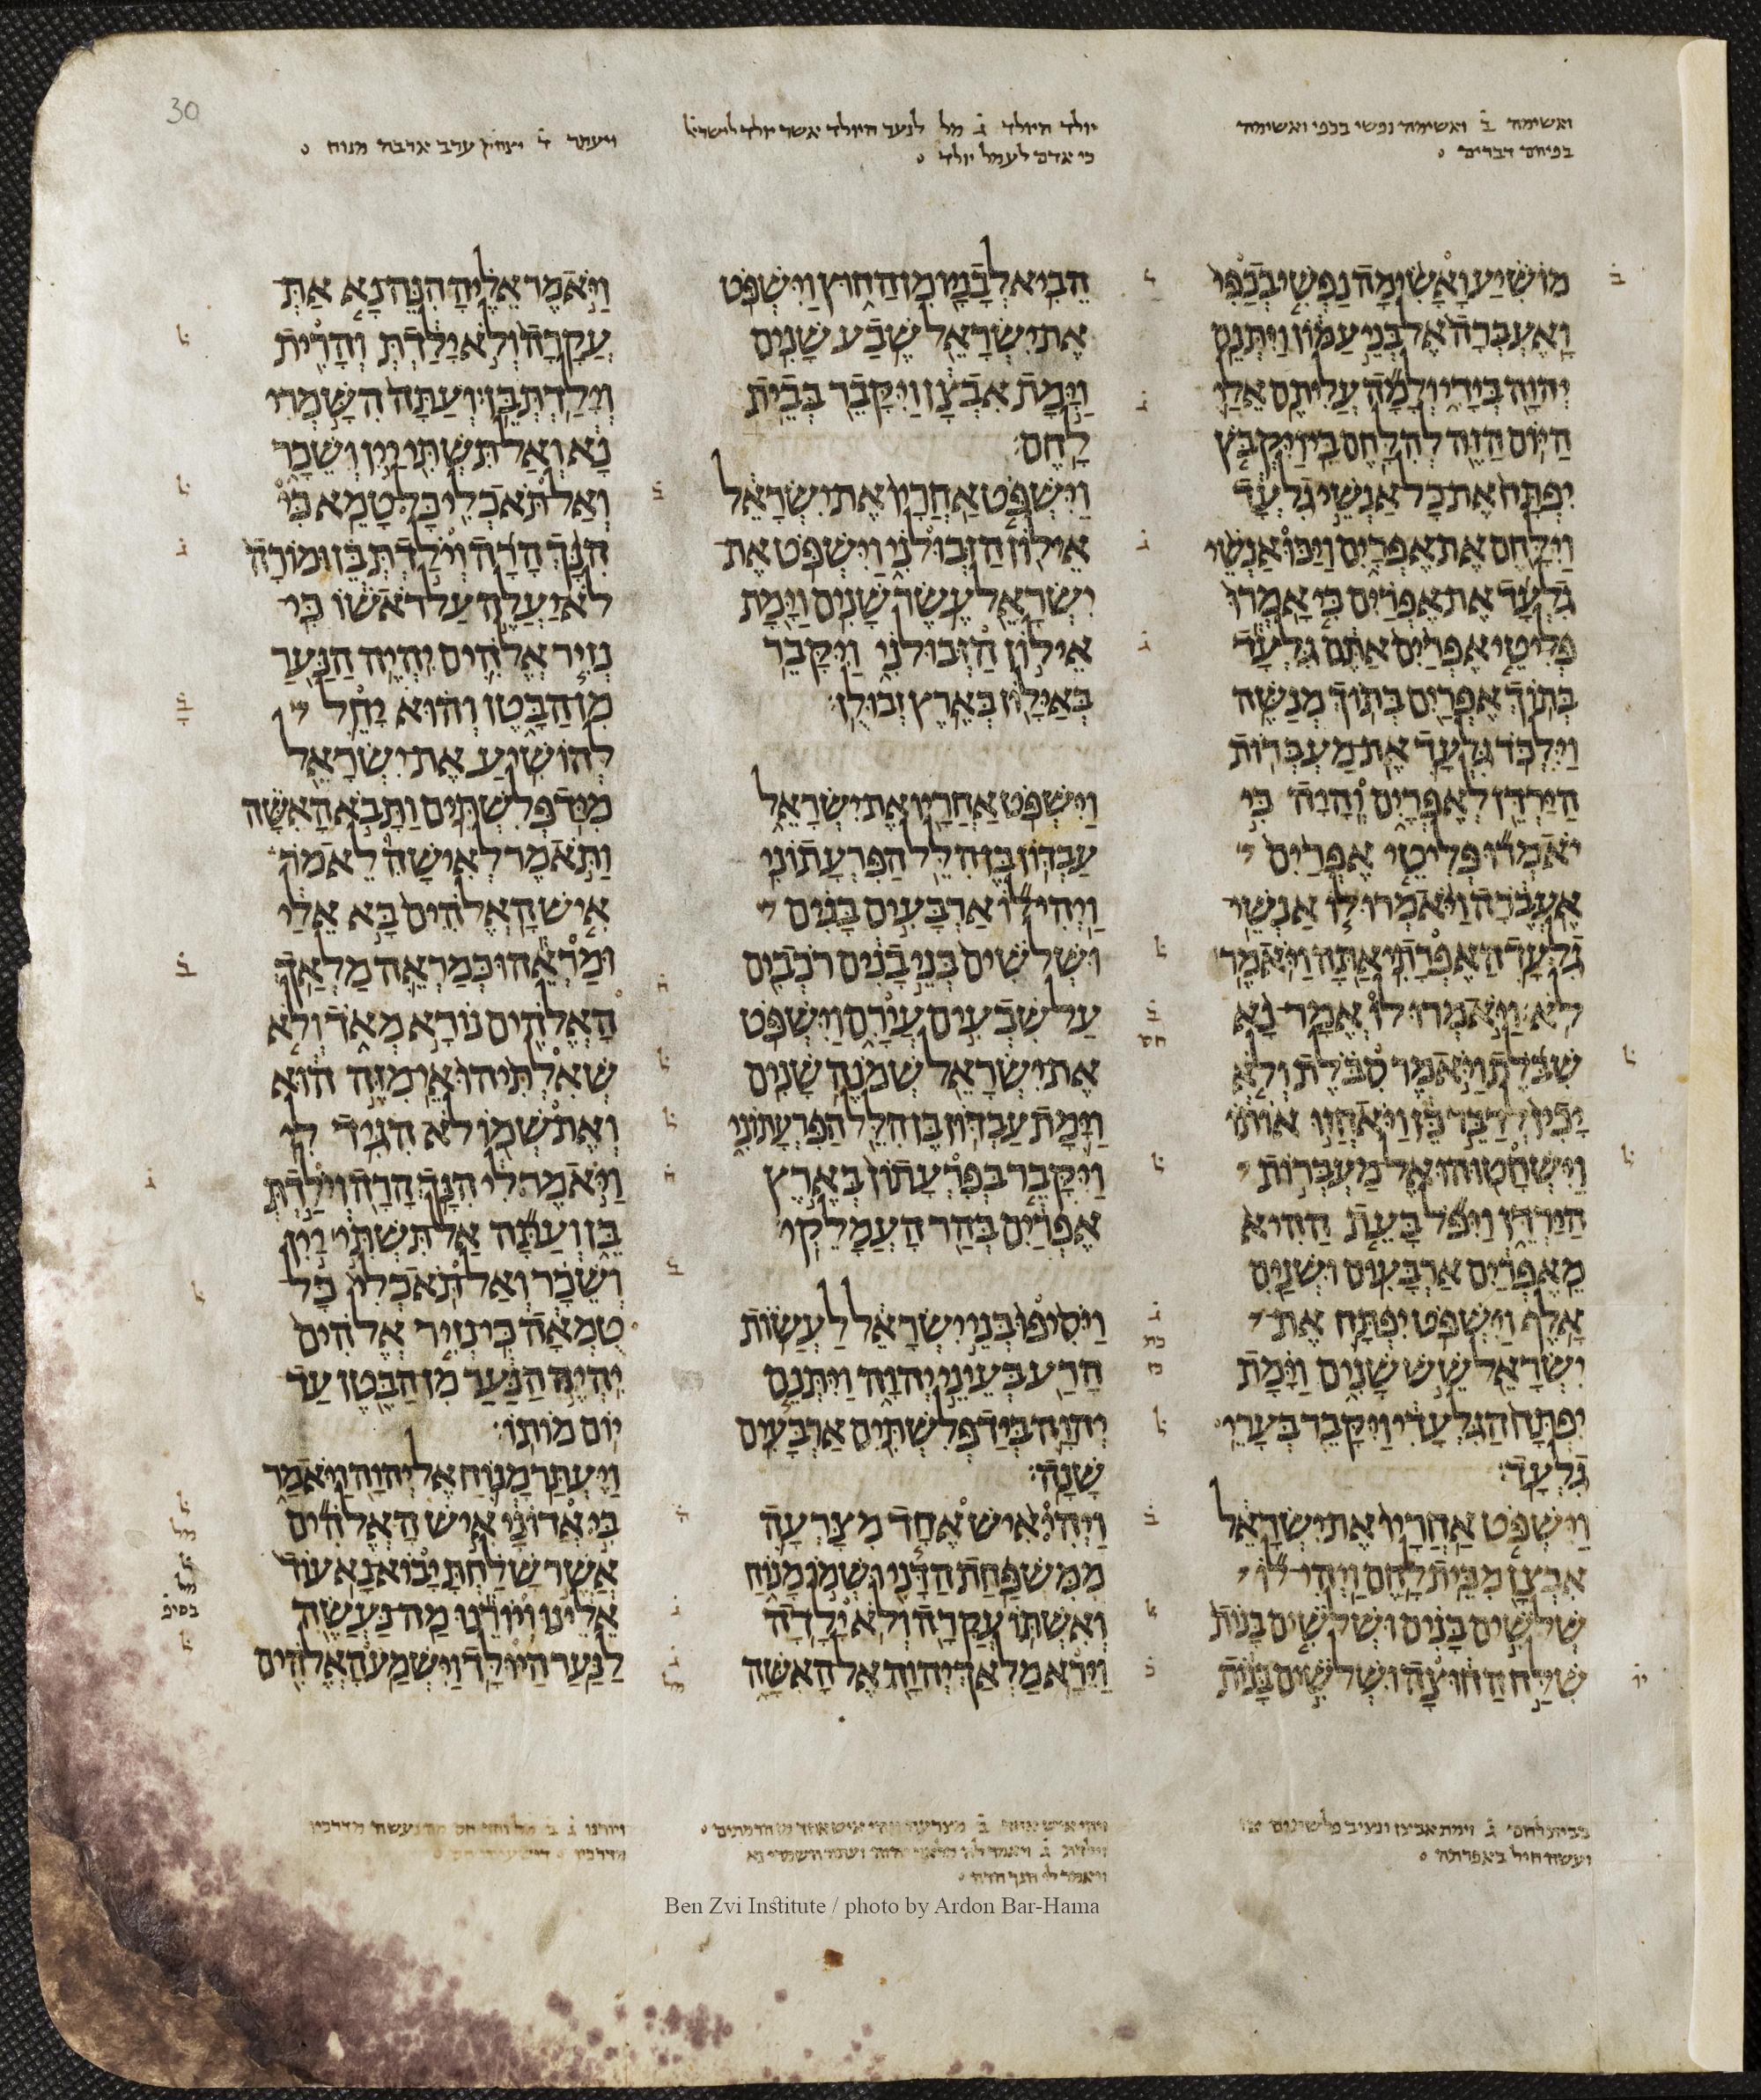 30
ואשימה ב ואשימה נפשי בכפי ואשימה
בפיהם דברים
יולד היולד ג מל לנער היולד אשר יולד לישראל
כי אדם לעמל יולד
ויעתר ד יצחק ערב ארבה מנוח
מוֹשִׁיעַ וָאָשִׂימָה נַפְשִׁי בְכַפִּי
וָאֶעְבְּרָה אֶל בְּנֵי עַמּוֹן וַיִּתְּנֵם
יְהוָה בְּיָדִי וְלָמָה עֲלִיתֶם אֵלַי
הַיּוֹם הַזֶּה לְהִלָּחֶם בִּי וַיִּקְבֹּץ
יִפְתָּח אֶת כָּל אַנְשֵׁי גִלְעָד
וַיִּלָּחֶם אֶת אֶפְרָיִם וַיַּכּוּ אַנְשֵׁי
גִלְעָד אֶת אֶפְרַיִם כִּי אָמְרוּ
פְּלִיטֵי אֶפְרַיִם אַתֶּם גִּלְעָד
בְּתוֹךְ אֶפְרַיִם בְּתוֹךְ מְנַשֶּׁה
וַיִּלְכֹּד גִּלְעָד אֶת מַעְבְּרוֹת
הַיַּרְדֵּן לְאֶפְרָיִם וְהָיָה כִּי
יֹאמְרוּ פְּלִיטֵי אֶפְרַיִם
אֶעֱבֹרָה וַיֹּאמְרוּ לוֹ אַנְשֵׁי
גִלְעָד הַאֶפְרָתִי אַתָּה וַיֹּאמֶר
לֹא׃ וַיֹּאמְרוּ לוֹ אֱמָר נָא
שִׁבֹּלֶת וַיֹּאמֶר סִבֹּלֶת וְלֹא
יָכִין לְדַבֵּר כֵּן וַיֹּאחֲזוּ אוֹתוֹ
וַיִּשְׁחָטוּהוּ אֶל מַעְבְּרוֹת
הַיַּרְדֵּן וַיִּפֹּל בָּעֵת הַהִיא
מֵאֶפְרַיִם אַרְבָּעִים וּשְׁנַיִם
אָלֶף׃ וַיִּשְׁפֹּט יִפְתָּח אֶת
יִשְׂרָאֵל שֵׁשׁ שָׁנִים וַיָּמָת
יִפְתָּח הַגִּלְעָדִי וַיִּקָּבֵר בְּעָרֵי
גִלְעָד׃
וַיִּשְׁפֹּט אַחֲרָיו אֶת יִשְׂרָאֵל
אִבְצָן מִבֵּית לָחֶם׃ וַיְהִי לוֹ
שְׁלֹשִׁים בָּנִים וּשְׁלֹשִׁים בָּנוֹת
שִׁלַּח הַחוּצָה וּשְׁלֹשִׁים בָּנוֹת
הֵבִיא לְבָנָיו מִן הַחוּץ וַיִּשְׁפֹּט
אֶת יִשְׂרָאֵל שֶׁבַע שָׁנִים
וַיָּמָת אִבְצָן וַיִּקָּבֵר בְּבֵית
לָחֶם׃
וַיִּשְׁפֹּט אַחֲרָיו אֶת יִשְׂרָאֵל
אֵילוֹן הַזְּבוּלֹנִי וַיִּשְׁפֹּט אֶת
יִשְׂרָאֵל עֶשֶׂר שָׁנִים וַיָּמָת
אֵילוֹן הַזְּבוּלֹנִי וַיִּקָּבֵר
בְּאַיָּלוֹן בְּאֶרֶץ זְבוּלֻן׃
וַיִּשְׁפֹּט אַחֲרָיו אֶת יִשְׂרָאֵל
עַבְדּוֹן בֶּן הִלֵּל הַפִּרְעָתוֹנִי
וַיְהִי לוֹ אַרְבָּעִים בָּנִים
וּשְׁלֹשִׁים בְּנֵי בָנִים רֹכְבִים
עַל שִׁבְעִים עֲיָרִם וַיִּשְׁפֹּט
אֶת יִשְׂרָאֵל שְׁמֹנֶה שָׁנִים
וַיָּמָת עַבְדּוֹן בֶּן הִלֵּל הַפִּרְעָתוֹנִי
וַיִּקָּבֵר בְּפִרְעָתוֹן בְּאֶרֶץ
אֶפְרַיִם בְּהַר הָעֲמָלֵקִי
וַיֹּסִיפוּ בְּנֵי יִשְׂרָאֵל לַעֲשׂוֹת
הָרַע בְּעֵינֵי יְהוָה וַיִּתְּנֵם
יְהוָה בְּיַד פְּלִשְׁתִּים אַרְבָּעִים
שָׁנָה׃
וַיְהִי אִישׁ אֶחָד מִצָּרְעָה
מִמִּשְׁפַּחַת הַדָּנִי וּשְׁמוֹ מָנוֹחַ
וְאִשְׁתּוֹ עֲקָרָה וְלֹא יָלָדָה
וַיֵּרָא מַלְאַךְ יְהוָה אֶל הָאִשָּׁה
וַיֹּאמֶר אֵלֶיהָ הִנֵּה נָא אַתְּ
עֲקָרָה וְלֹא יָלַדְתְּ וְהָרִית
וְיָלַדְתְּ בֵּן׃ וְעַתָּה הִשָּׁמְרִי
נָא וְאַל תִּשְׁתִּי יַיִן וְשֵׁכָר
וְאַל תֹּאכְלִי כָּל טָמֵא׃ כִּי
הִנָּךְ הָרָה וְיֹלַדְתְּ בֵּן וּמוֹרָה
לֹא יַעֲלֶה עַל רֹאשׁוֹ כִּי
נְזִיר אֱלֹהִים יִהְיֶה הַנַּעַר
מִן הַבָּטֶן וְהוּא יָחֵל
לְהוֹשִׁיעַ אֶת יִשְׂרָאֵל
מִיַּד פְּלִשְׁתִּים׃ וַתָּבֹא הָאִשָּׁה
וַתֹּאמֶר לְאִישָׁהּ לֵאמֹר
אִישׁ הָאֱלֹהִים בָּא אֵלַי
וּמַרְאֵהוּ כְּמַרְאֵה מַלְאַךְ
הָאֱלֹהִים נוֹרָא מְאֹד וְלֹא
שְׁאִלְתִּיהוּ אֵי מִזֶּה הוּא
וְאֶת שְׁמוֹ לֹא הִגִּיד לִי
וַיֹּאמֶר לִי הִנָּךְ הָרָה וְיֹלַדְתְּ
בֵּן וְעַתָּה אַל תִּשְׁתִּי יַיִן
וְשֵׁכָר וְאַל תֹּאכְלִי כָּל
טֻמְאָה כִּי נְזִיר אֱלֹהִים
יִהְיֶה הַנַּעַר מִן הַבֶּטֶן עַד
יוֹם מוֹתוֹ׃
וַיֶּעְתַּר מָנוֹחַ אֶל יְהוָה וַיֹּאמַר
בִּי אֲדוֹנָי אִישׁ הָאֱלֹהִים
אֲשֶׁר שָׁלַחְתָּ יָבוֹא נָא עוֹד
אֵלֵינוּ וְיוֹרֵנוּ מַה נַּעֲשֶׂה
לַנַּעַר הַיּוּלָּד׃ וַיִּשְׁמַע הָאֱלֹהִים
בבית לחם ג וימת אבצן ונציב פלשתים
ועשה חיל באפרתה
ויהי איש אחד ב מצרעה ויהי איש אחד מן הרמתים
וילדת ג ויאמר לה מלאך יהוה ועתה השמרי נא
ויאמר לי הנך הרה
Ben Zvi Institute / photo by Ardon Bar-Hama